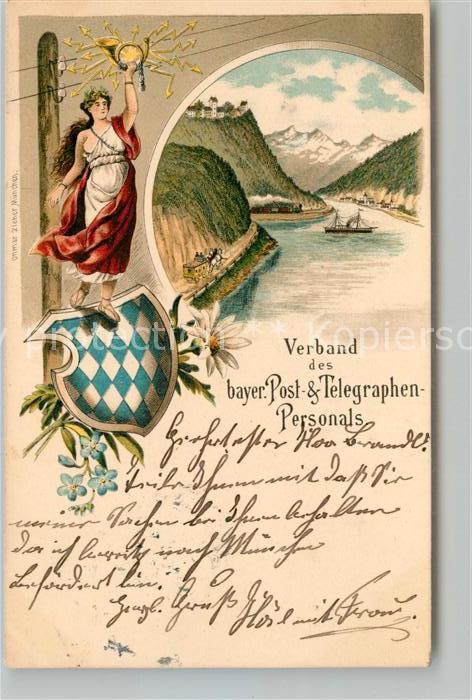 Ottmar Zieher München.
Verband
des
bayer. Post- & Telegraphen-
Personals
Geehrtester Herr Brandl!
Teile Ihnen mit daß Sie
meine Sachen bei Ihnen behalten
da ich bereits nach München
befördert bin.
Herzl. Gruß
mit Frau.